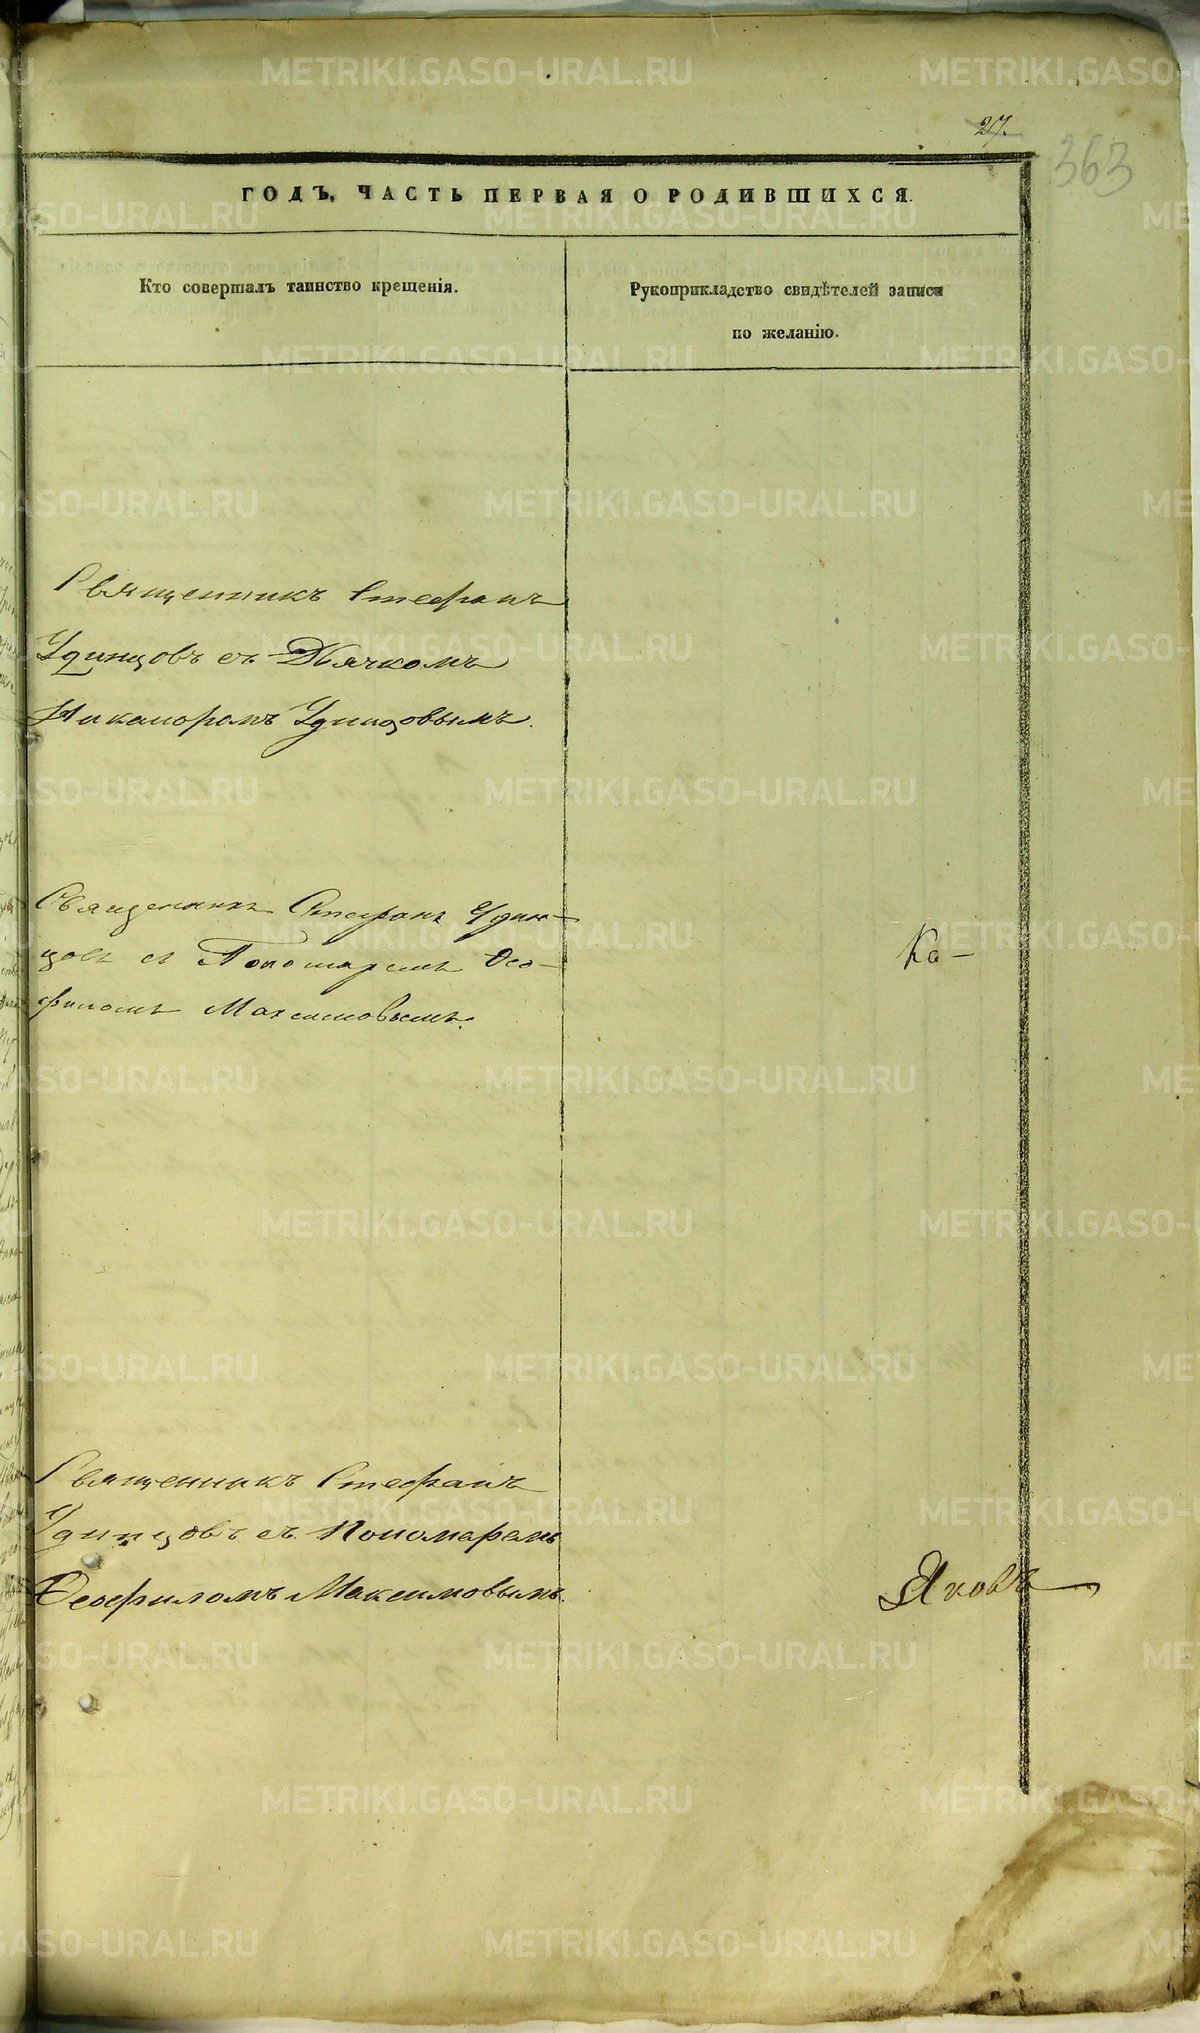 27.
363
ГОДЪ, ЧАСТЬ ПЕРВАЯ О РОДИВШИХСЯ.
Кто совершалъ таинство крещенія.
Рукоприкладство свидѣтелей записи
по желанію.
Священникъ Стефанъ
Удинцовъ съ Дьячкомъ
Никаноромъ Удинцовымъ.
Священникъ Стефанъ Удин-
цовъ съ Пономаремъ Ѳео-
филомъ Максимовымъ.
Ка-
Священникъ Стефанъ
Удинцовъ съ Пономаремъ
Ѳеофиломъ Максимовымъ.
Яковъ
METRIKI.GASO-URAL.RU